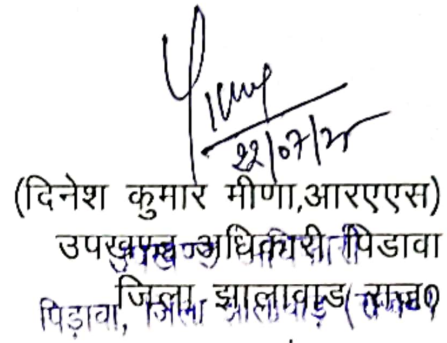 22/07/25
(दिनेश कुमार मीणा,आरएएस)
उपखण्ड अधिकारी पिडावा
जिला झालावाड राज०
पिड़ावा, जिला झालावाड़ (राज०)